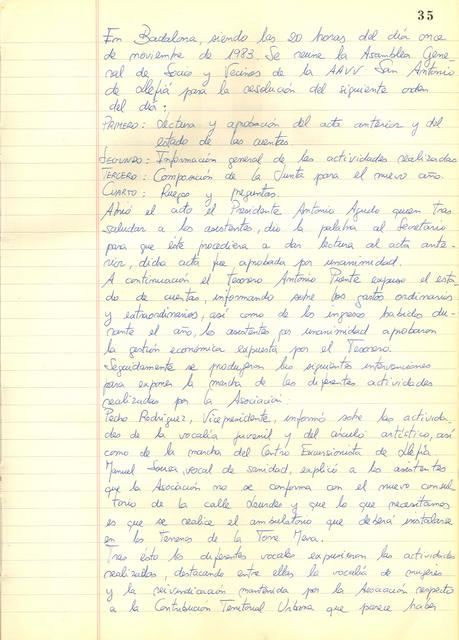 35
En Badalona, siendo las 20 horas del día once
de noviembre de 1983. Se reune la Asamblea Gene-
ral de Socios y Vecinos de la AAVV San Antonio
de Llefià para la resolución del siguiente orden
del día:
PRIMERO: Lectura y aprobación del acta anterior y del
estado de las cuentas.
SEGUNDO: Información general de las actividades realizadas
TERCERO: Composición de la Junta para el nuevo año.
CUARTO: Ruegos y preguntas.
Abrió el acto el Presidente Antonio Agudo quien tras
saludar a los asistentes, dio la palabra al Secretario
para que éste procediera a dar lectura al acta ante-
rior, dicha acta fue aprobada por unanimidad.
A continuación el Tesorero Antonio Puente expuso el esta-
do de cuentas, informando sobre los gastos ordinarios
y extraordinarios, así como de los ingresos habidos du-
rante el año, los asistentes por unanimidad aprobaron
la gestión económica expuesta por el Tesorero.
Seguidamente se produjeron las siguientes intervenciones
para exponer la marcha de las diferentes actividades
realizadas por la Asociación:
Pedro Rodriguez, Vicepresidente, informó sobre las activida-
des de la vocalía juvenil y del círculo artístico, así
como de la marcha del Centro Excursionista de Llefià
Manuel Sousa, vocal de sanidad, explicó a los asistentes
que la Asociación no se conforma con el nuevo consul-
torio de la calle Lourdes y que lo que necesitamos
es que se realice el ambulatorio que deberá instalarse
en los terrenos de la Torre Mena.
Tras esto los diferentes vocales expusieron las actividades
realizadas, destacando entre ellas la vocalía de mujeres
y la reivindicación mantenida por la Asociación respecto
a la Contribucion Territorial Urbana que parece haber